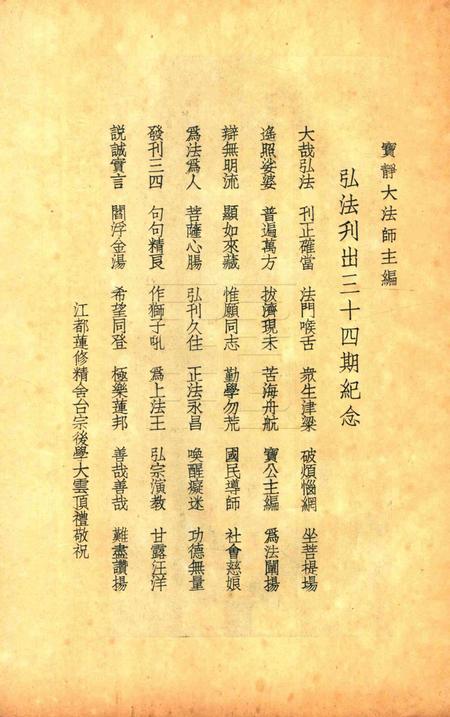 寶靜大法師主編
弘法刋出三十四期紀念
大哉弘法 刋正確當 法門喉舌 衆生津梁 破煩惱網 坐菩提場
遙照娑婆 普遍萬方 拔濟現未 苦海舟航 寶公主編 爲法闡揚
辯無明流 顯如來藏 惟願同志 勤學勿荒 國民導師 社會慈娘
爲法爲人 菩薩心腸 弘刋久住 正法永昌 喚醒癡迷 功德無量
發刋三四 句句精良 作獅子吼 爲上法王 弘宗演教 甘露汪洋
説誠實言 閻浮金湯 希望同登 極樂蓮邦 善哉善哉 難盡讚揚
江都蓮修精舍台宗後學大雲頂禮敬祝